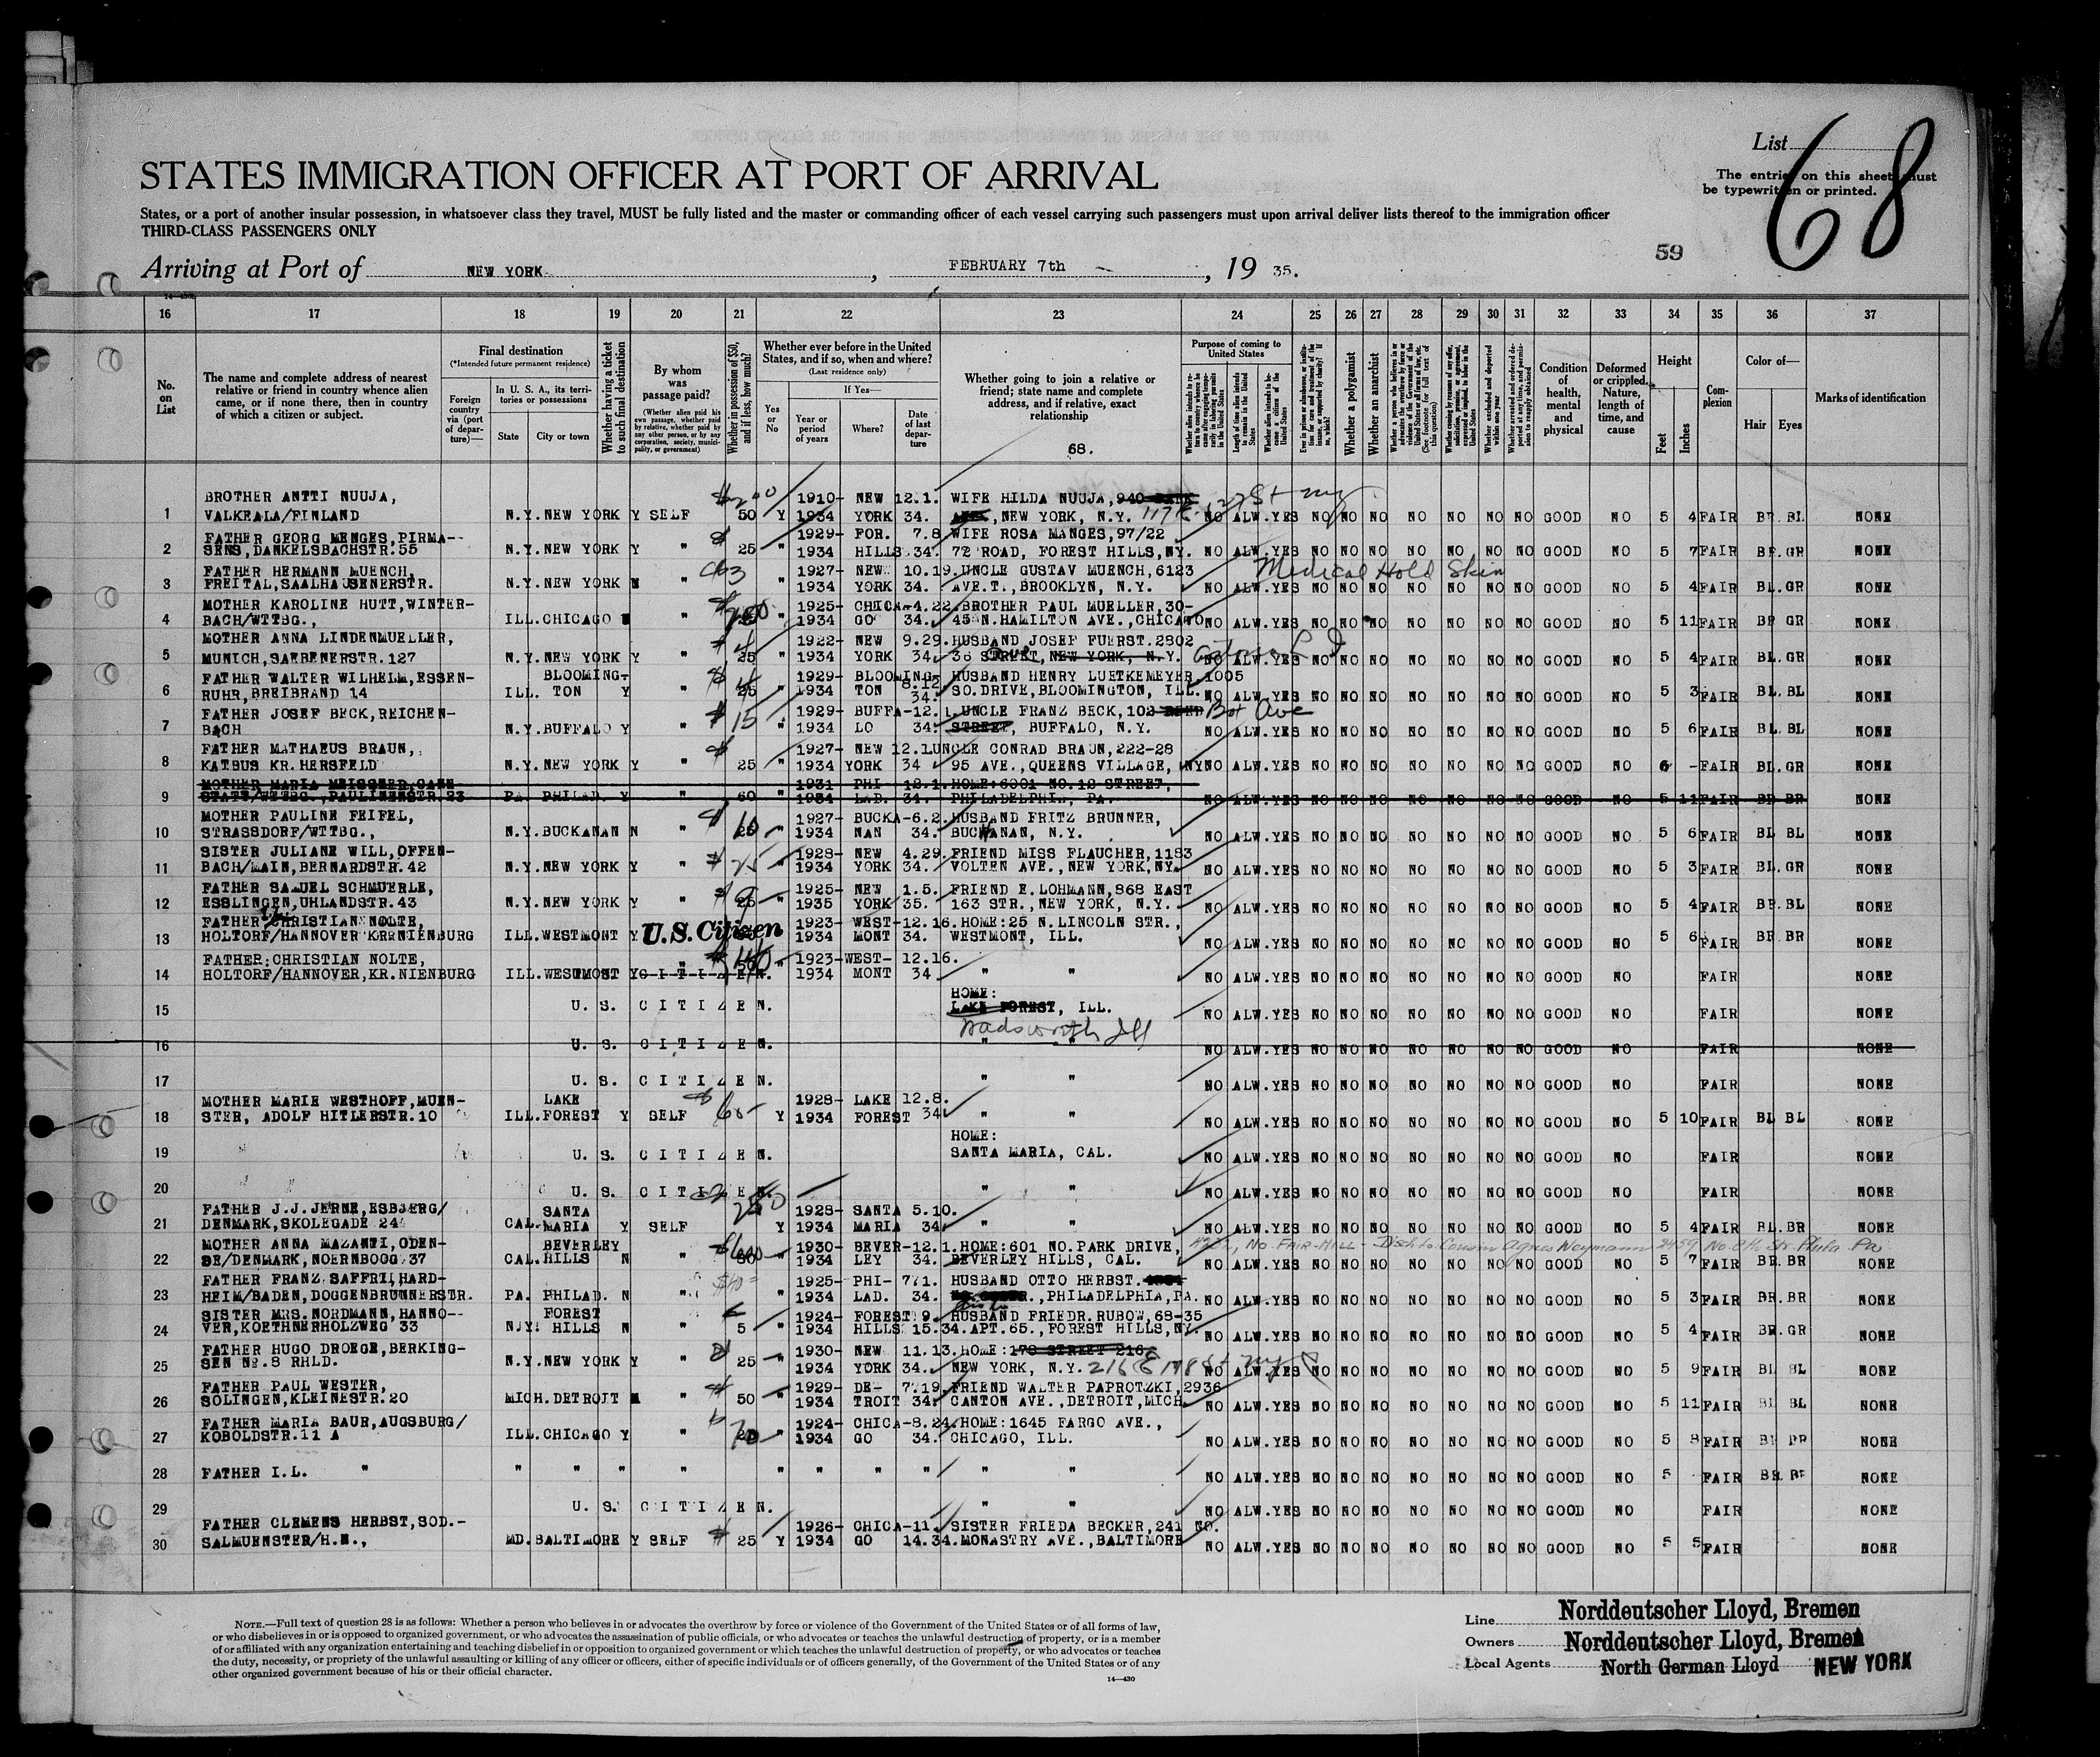 List
68
The entries on this sheet must
be typewritten or printed.
STATES IMMIGRATION OFFICER AT PORT OF ARRIVAL
States, or a port of another insular possession, in whatsoever class they travel, MUST be fully listed and the master or commanding officer of each vessel carrying such passengers must upon arrival deliver lists thereof to the immigration officer
THIRD-CLASS PASSENGERS ONLY
59
Arriving at Port of NEW YORK, FEBRUARY 7th, 19 35.
16 17 18 19 20 21 22 23 24 25 26 27 28 29 30 31 32 33 34 35 36 37
No. on List
The name and complete address of nearest relative or friend in country whence alien came, or if none there, then in country of which a citizen or subject.
Final destination
(*Intended future permanent residence)
Foreign country via (port of departure)—
In U. S. A., its territories or possessions
State City or town
Whether having a ticket to such final destination
By whom was passage paid?
(Whether alien paid his own passage, whether paid by relative, whether paid by any other person, or by any corporation, society, municipality, or government)
Whether in possession of $50, and if less, how much?
Whether ever before in the United States, and if so, when and where?
(Last residence only)
Yes or No
If Yes—
Year or period of years
Where?
Date of last departure
Whether going to join a relative or friend; state name and complete address, and if relative, exact relationship
68.
Purpose of coming to United States
Whether a polygamist
Whether an anarchist
Condition of health, mental and physical
Deformed or crippled. Nature, length of time, and cause
Height
Feet Inches
Complexion
Color of—
Hair Eyes
Marks of identification
BROTHER ANTTI NUUJA, $200 1910- NEW 12.1. WIFE HILDA NUUJA, 940
1 VALKEALA/FINLAND N.Y. NEW YORK Y SELF 50 Y 1934 YORK 34. NEW YORK, N.Y. NO ALW. YES NO NO NO NO NO NO NO GOOD NO 5 4 FAIR BR. BL NONE
FATHER GEORG MENGES, PIRMA- 1929- FOR. 7.8 WIFE ROSA MANGES, 97/22
2 SENS, DANKELSBACHSTR. 55 N.Y. NEW YORK Y " 25 " 1934 HILLS 34. 72 ROAD, FOREST HILLS, NY. NO ALW. YES NO NO NO NO NO NO NO GOOD NO 5 7 FAIR BR. GR NONE
FATHER HERMANN MUENCH, 1927- NEW 10.19. UNCLE GUSTAV MUENCH, 6123 Medical Hold Skin
3 FREITAL, SAALHAUSENERSTR. N.Y. NEW YORK N " " 1934 YORK 34. AVE.T., BROOKLYN, N.Y. NO ALW. YES NO NO NO NO NO NO NO GOOD NO 5 4 FAIR BL. GR NONE
MOTHER KAROLINE HUTT, WINTER- 1925- CHICA- 4.22. BROTHER PAUL MUELLER, 30-
4 BACH/WTTBG., ILL. CHICAGO " " 1934 GO 34. 45 N.HAMILTON AVE., CHICAGO NO ALW. YES NO NO NO NO NO NO NO GOOD NO 5 11 FAIR BR GR NONE
MOTHER ANNA LINDENMUELLER, 1922- NEW 9.29. HUSBAND JOSEF FUERST. 2802
5 MUNICH, SAEBENERSTR. 127 N.Y. NEW YORK Y " 25 " 1934 YORK 34 36 STREET, NEW YORK, N.Y. Ave Astoria L I NO ALW. YES NO NO NO NO NO NO NO GOOD NO 5 4 FAIR BL. GR NONE
FATHER WALTER WILHELM, ESSEN- BLOOMING- 1929- BLOOMING- 8.12. HUSBAND HENRY LUETKEMEYER, 1005
6 RUHR, BREIBRAND 14 ILL. TON Y " 25 " 1934 TON 34. SO. DRIVE, BLOOMINGTON, ILL. NO ALW. YES NO NO NO NO NO NO NO GOOD NO 5 3 FAIR BL. BL NONE
FATHER JOSEF BECK, REICHEN- $15 1929- BUFFA- 12.1. UNCLE FRANZ BECK, 102
7 BACH N.Y. BUFFALO Y " " 1934 LO 34. STREET, BUFFALO, N.Y. NO ALW. YES NO NO NO NO NO NO NO GOOD NO 5 6 FAIR BL. BL NONE
FATHER MATHAEUS BRAUN, 1927- NEW 12.1. UNCLE CONRAD BRAUN, 222-28
8 KATBUS KR. HERSFELD N.Y. NEW YORK Y " 25 " 1934 YORK 34 95 AVE., QUEENS VILLAGE, NY NO ALW. YES NO NO NO NO NO NO NO GOOD NO 6 - FAIR BL. GR NONE
MOTHER MARIA MEISSNER, CANN- 1931- PHI- 12.1. HOME: 6001 NO. 12 STREET,
9 STATT/WTTBG., PAULINENSTR. 23 PA. PHILAD. Y " 60 " 1934 LAD. 34. PHILADELPHIA, PA. NO ALW. YES NO NO NO NO NO NO NO GOOD NO 5 11 FAIR BR BR NONE
MOTHER PAULINE FEIFEL, 1927- BUCKA- 6.2. HUSBAND FRITZ BRUNNER,
10 STRASSDORF/WTTBG., N.Y. BUCKANAN N " " 1934 NAN 34. BUCHANAN, N.Y. NO ALW. YES NO NO NO NO NO NO NO GOOD NO 5 6 FAIR BL BL NONE
SISTER JULIANE WILL, OFFEN- 1928- NEW 4.29. FRIEND MISS FLAUCHER, 1183
11 BACH/MAIN, BERNARDSTR. 42 N.Y. NEW YORK Y " 25 " 1934 YORK 34. VOLTEN AVE., NEW YORK, NY. NO ALW. YES NO NO NO NO NO NO NO GOOD NO 5 3 FAIR BL. GR NONE
FATHER SAMUEL SCHMUERLE, 1925- NEW 1.5. FRIEND E. LOHMANN, 868 EAST
12 ESSLINGEN, UHLANDSTR. 43 N.Y. NEW YORK Y " 25 " 1935 YORK 35. 163 STR., NEW YORK, N.Y. NO ALW. YES NO NO NO NO NO NO NO GOOD NO 5 4 FAIR BR. BL NONE
FATHER CHRISTIAN NOLTE, 1923- WEST- 12.16. HOME: 25 N. LINCOLN STR.,
13 HOLTORF/HANNOVER KR NIENBURG ILL. WESTMONT Y U.S. Citizen 1934 MONT 34. WESTMONT, ILL. NO ALW. YES NO NO NO NO NO NO NO GOOD NO 5 6 FAIR BR. BR NONE
FATHER: CHRISTIAN NOLTE, 1923- WEST- 12.16.
14 HOLTORF/HANNOVER, KR. NIENBURG ILL. WESTMONT Y C I T I Z E N. 1934 MONT 34 " " NO ALW. YES NO NO NO NO NO NO NO GOOD NO FAIR NONE
HOME:
15 U. S. C I T I Z E N. LAKE FOREST, ILL. NO ALW. YES NO NO NO NO NO NO NO GOOD NO FAIR NONE
Wadsworth Ill
16 U. S. C I T I Z E N. " " NO ALW. YES NO NO NO NO NO NO NO GOOD NO FAIR NONE
17 U. S. C I T I Z E N. " " NO ALW. YES NO NO NO NO NO NO NO GOOD NO FAIR NONE
MOTHER MARIE WESTHOFF, MUEN- LAKE 1928- LAKE 12.8.
18 STER, ADOLF HITLERSTR. 10 ILL. FOREST Y SELF Y 1934 FOREST 34 " " NO ALW. YES NO NO NO NO NO NO NO GOOD NO 5 10 FAIR BL BL NONE
HOME:
19 U. S. C I T I Z E N. SANTA MARIA, CAL. NO ALW. YES NO NO NO NO NO NO NO GOOD NO FAIR NONE
20 U. S. C I T I Z E N. " " NO ALW. YES NO NO NO NO NO NO NO GOOD NO FAIR NONE
FATHER J.J. JERNE, ESBJERG/ SANTA 1928- SANTA 5.10.
21 DENMARK, SKOLEGADE 24 CAL. MARIA Y SELF Y 1934 MARIA 34 " " NO ALW. YES NO NO NO NO NO NO NO GOOD NO 5 4 FAIR BL. BR NONE
MOTHER ANNA MAZANTI, ODEN- BEVERLEY 1930- BEVER- 12.1. HOME: 601 NO. PARK DRIVE, No. Fair-Hill - Disch to Cousin Agnes Neymann 2459 No. 8th St. Phila Pa
22 SE/DENMARK, NOERNBOGG 37 CAL. HILLS N " " 1934 LEY 34. BEVERLY HILLS, CAL. NO ALW. YES NO NO NO NO NO NO NO GOOD NO 5 7 FAIR BR. BR NONE
FATHER FRANZ SAFFRIL, HARD- 1925- PHI- 7.1. HUSBAND OTTO HERBST.
23 HEIM/BADEN, DOGGENBRUNNERSTR. PA. PHILAD. N " " 1934 LAD. 34. PHILADELPHIA, PA. NO ALW. YES NO NO NO NO NO NO NO GOOD NO 5 3 FAIR BR. BR NONE
SISTER MRS. NORDMANN, HANNO- FOREST 1924- FOREST 9. HUSBAND FRIEDR. RUBOW, 68-35
24 VER, KOETHNERHOLZWEG 33 N.Y. HILLS N " 5 " 1934 HILLS 15.34. APT. 65., FOREST HILLS, NY. NO ALW. YES NO NO NO NO NO NO NO GOOD NO 5 4 FAIR BR. GR NONE
FATHER HUGO DROEGE, BERKING- 1930- NEW 11.13. HOME: 178 STREET 216
25 SEN No. 8 RHLD. N.Y. NEW YORK Y " 25 " 1934 YORK 34. NEW YORK, N.Y. 216 E 178 St NY NO ALW. YES NO NO NO NO NO NO NO GOOD NO 5 9 FAIR BL BL NONE
FATHER PAUL WESTER, 1929- DE- 7.19. FRIEND WALTER PAPROTZKI, 2936
26 SOLINGEN, KLEINESTR. 20 MICH. DETROIT " 50 " 1934 TROIT 34. CANTON AVE., DETROIT, MICH. NO ALW. YES NO NO NO NO NO NO NO GOOD NO 5 11 FAIR BL BL NONE
FATHER MARIA BAUR, AUGSBURG/ 1924- CHICA- 8.24. HOME: 1645 FARGO AVE.,
27 KOBOLDSTR. 11 A ILL. CHICAGO Y " " 1934 GO 34. CHICAGO, ILL. NO ALW. YES NO NO NO NO NO NO NO GOOD NO 5 8 FAIR NONE
28 FATHER I.L. " " " " " " " " " " " NO ALW. YES NO NO NO NO NO NO NO GOOD NO 5 FAIR NONE
29 U. S. C I T I Z E N. " " NO ALW. YES NO NO NO NO NO NO NO GOOD NO FAIR NONE
FATHER CLEMENS HERBST, SOD.- 1926- CHICA- 11. SISTER FRIEDA BECKER, 241 NO.
30 SALMUENSTER/H.N., MD. BALTIMORE Y SELF 25 Y 1934 GO 14.34. MONASTRY AVE., BALTIMORE NO ALW. YES NO NO NO NO NO NO NO GOOD NO 5 5 FAIR NONE
NOTE.—Full text of question 28 is as follows: Whether a person who believes in or advocates the overthrow by force or violence of the Government of the United States or of all forms of law,
or who disbelieves in or is opposed to organized government, or who advocates the assassination of public officials, or who advocates or teaches the unlawful destruction of property, or is a member
of or affiliated with any organization entertaining and teaching disbelief in or opposition to organized government or which teaches the unlawful destruction of property, or who advocates or teaches
the duty, necessity, or propriety of the unlawful assaulting or killing of any officer or officers, either of specific individuals or of officers generally, of the Government of the United States or of any
other organized government because of his or their official character.
14—430
Line Norddeutscher Lloyd, Bremen
Owners Norddeutscher Lloyd, Bremen
Local Agents North German Lloyd NEW YORK